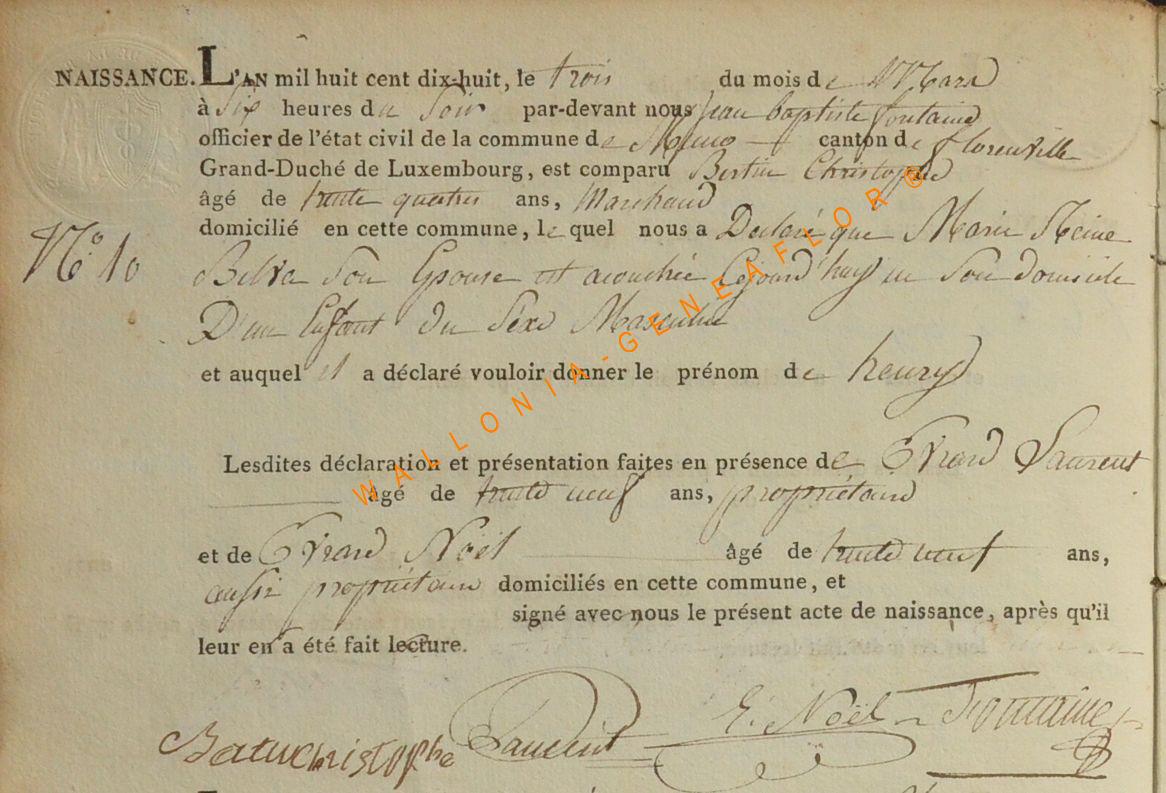 NAISSANCE. L'AN mil huit cent dix-huit, le trois du mois de Mars
à Six heures du Soir par-devant nous Jean baptiste fontaine
officier de l'état civil de la commune de Muno canton de florenville
Grand-Duché de Luxembourg, est comparu Bertin Christophe
âgé de trente quatre ans, Marchand
domicilié en cette commune, le quel nous a Declaré que Marie Heine
N.º 10 Son Epouse est acouchée cejourd'huy en Son domicile
D'un Enfant du Sexe Masculin
et auquel il a déclaré vouloir donner le prénom de henry
Lesdites déclaration et présentation faites en présence de Evrard Laurent
âgé de trente neuf ans, propriétaire
et de Evrard Noël âgé de trente neuf ans,
aussi propriétaire domiciliés en cette commune, et
signé avec nous le présent acte de naissance, après qu'il
leur en a été fait lecture.
christophe Laurent E. Noël Fontaine
WALLONIA-GENEAFLOR ®